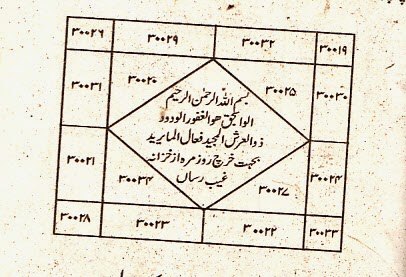 ۳۰۰۱۹ ۳۰۰۳۲ ۳۰۰۲۹ ۳۰۰۲۶
۳۰۰۳۰ ۳۰۰۲۵ ۳۰۰۲۰ ۳۰۰۳۱
بسم اللہ الرحمٰن الرحیم
ھو الغفور الودود
ذوالعرش المجید فعال لما یرید
بجہت خرچ روزمرہ از خزانہ
غیب رساں
۳۰۰۲۴ ۳۰۰۲۷ ۳۰۰۳۴ ۳۰۰۲۱
۳۰۰۳۳ ۳۰۰۲۲ ۳۰۰۲۳ ۳۰۰۲۸